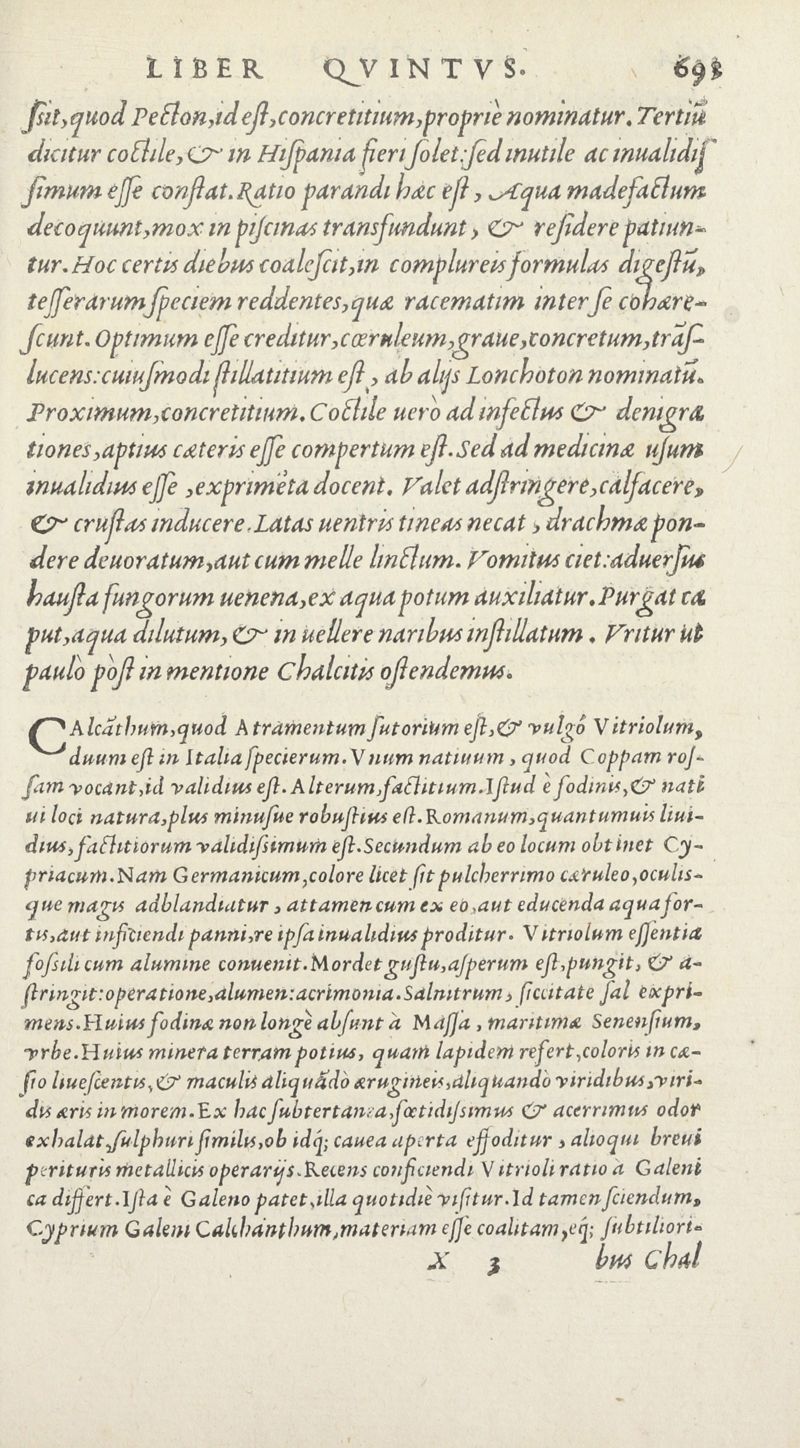 LIBER QVINTVS. 691
ſsit, quod Pecton, id eſt, concretitium, proprie nominatur. Tertiũ
dicitur coctile, & in Hiſpania fieri ſolet: ſed inutile ac inualidiſ
ſimum eſſe conſtat. Ratio parandi hæc eſt, Aqua madefactum
decoquunt, mox in piſcinas transfundunt, & reſidere patiun-
tur. Hoc certis diebus coaleſcit, in complureis formulas digeſtũ,
teſſerarum ſpeciem reddentes, quæ racematim inter ſe cohære-
ſcunt. Optimum eſſe creditur, cœruleum, graue, concretum, trãſ-
lucens: cuiuſmodi ſtillatitium eſt, ab alijs Lonchoton nominatũ.
Proximum, concretitium. Coctile uerò ad infectus & denigra
tiones, aptius cæteris eſſe compertum eſt. Sed ad medicinæ uſum
inualidius eſſe, exprimẽta docent. Valet adſtringere, calfacere,
& cruſtas inducere. Latas uentris tineas necat, drachmæ pon-
dere deuoratum, aut cum melle linctum. Vomitus ciet: aduerſus
hauſta fungorum uenena, ex aqua potum auxiliatur. Purgat ca
put, aqua dilutum, & in uellere naribus inſtillatum. Vritur ut
paulò pòſt in mentione Chalcitis oſtendemus.
CAlcãthum, quod Atramentum ſutorium eſt, & vulgò Vitriolum,
duum eſt in Italia ſpecierum. Vnum natiuum, quod Coppam roſ-
ſam vocant, id validius eſt. Alterum, factitium. Iſtud è fodinis, & nati
ui loci natura, plus minuſue robuſtius eſt. Romanum, quantumuis liui-
dius, factitiorum validiſsimum eſt. Secundum ab eo locum obtinet Cy-
priacum. Nam Germanicum, colore licet ſit pulcherrimo cæruleo, oculis-
que magis adblandiatur, attamen cum ex eo, aut educenda aqua for-
tis, aut inficiendi panni, re ipſa inualidius proditur. Vitriolum eſſentia
foſsili cum alumine conuenit. Mordet guſtu, aſperum eſt, pungit, & a-
ſtringit: operatione, alumen: acrimonia. Salnitrum, ſiccitate ſal expri-
mens. Huius fodinæ non longè abſunt à Maſſa, maritimæ Senenſium,
vrbe. Huius minera terram potius, quam lapidem refert, coloris in cæ-
ſio liueſcentis, & maculis aliquãdo ærugineis, aliquando viridibus, viri-
dis æris in morem. Ex hac ſubterranea, fœtidiſsimus & acerrimus odor
exhalat, ſulphuri ſimilis, ob idq; cauea aperta effoditur, alioqui breui
perituris metallicis operarijs. Recens conficiendi Vitrioli ratio à Galeni
ea differt. Iſta è Galeno patet, illa quotidiè viſitur. Id tamen ſciendum,
Cyprium Galeni Calchanthum, materiam eſſe coalitam, eq; ſubtiliori-
X 3 bus Chal